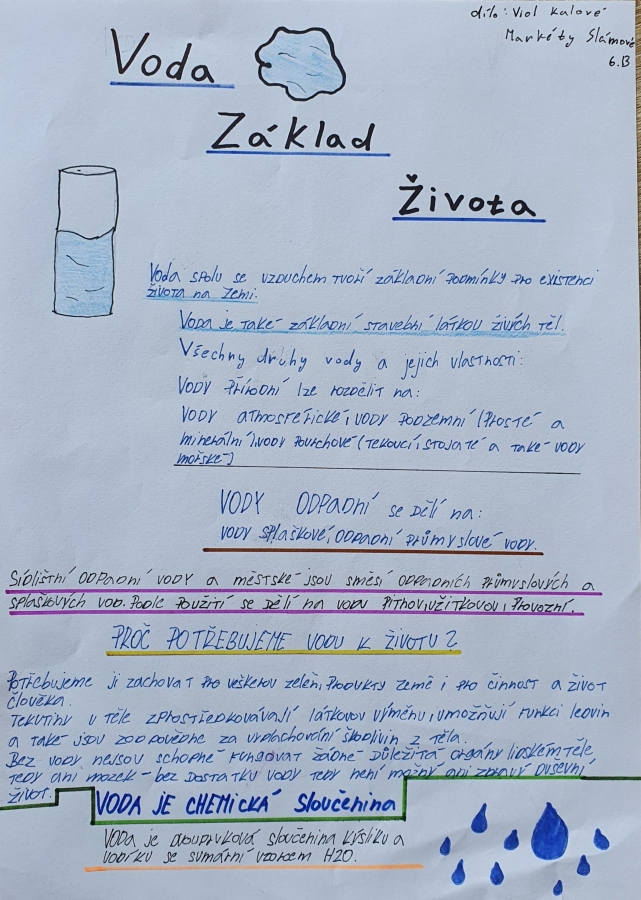 dílo: Viol Kalové
Markéty Slámové
6.B
Voda
Základ
Života
Voda spolu se vzduchem tvoří základní podmínky pro existenci
života na Zemi.
Voda je také základní stavební látkou živých těl.
Všechny druhy vody a jejich vlastnosti:
Vody přírodní lze rozdělit na:
Vody atmosférické, vody podzemní (prosté a
minerální), vody povrchové (tekoucí, stojaté a také vody
mořské)
VODY ODPADNÍ se dělí na:
vody splaškové, odpadní průmyslové vody.
Sídlištní odpadní vody a městské jsou směsí odpadních průmyslových a
splaškových vod. Podle použití se dělí na vodu pitnou, užitkovou, provozní.
PROČ POTŘEBUJEME VODU K ŽIVOTU?
Potřebujeme ji zachovat pro veškerou zeleň, produkty země i pro činnost a život
člověka.
Tekutiny v těle zprostředkovávají látkovou výměnu, umožňují funkci ledvin
a také jsou zodpovědné za vyplachování škodlivin z těla.
Bez vody nejsou schopné fungovat žádné důležitá orgány lidském těle,
tedy ani mozek - bez dostatku vody tedy není možný ani zdravý duševní
život.
VODA JE CHEMICKÁ sloučenina
Voda je dvouprvková sloučenina kyslíku a
vodíku se sumární vzorcem H2O.